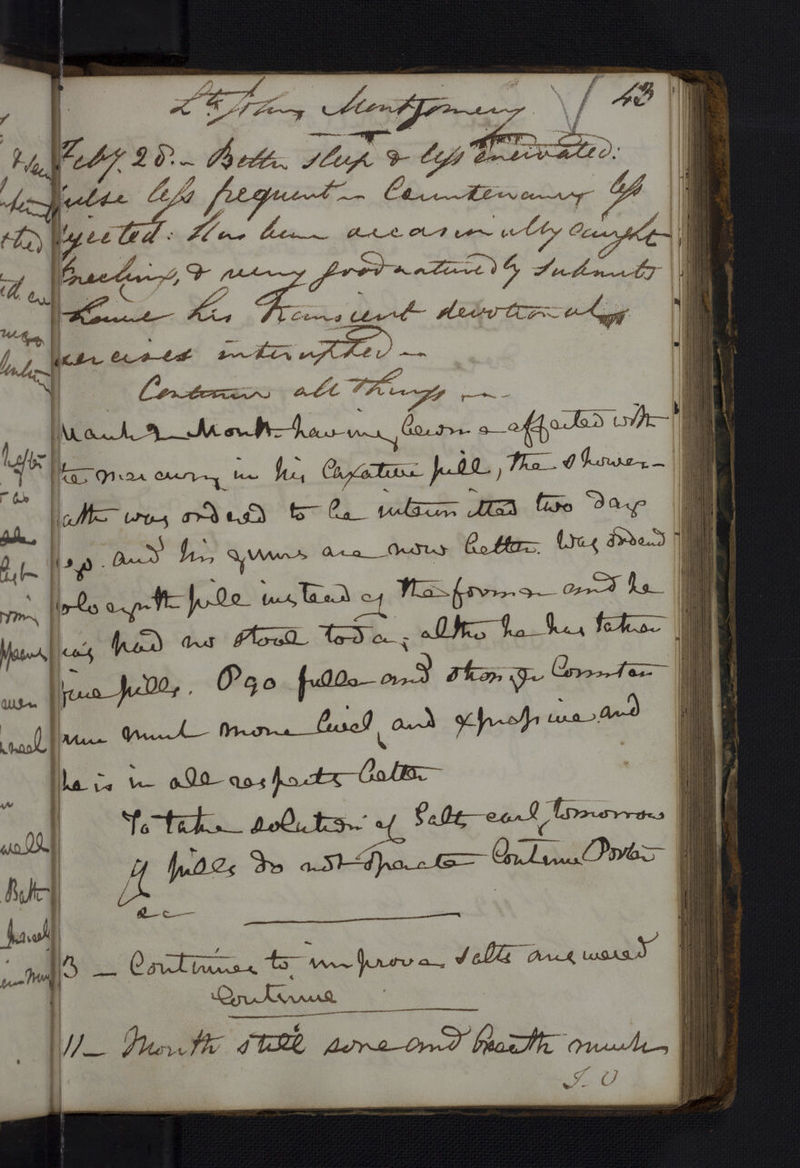 Lt. John Montgomery 43
Feby. 28. – Better sleep & less enervated:
pulse less frequent – Countenance less
dejected: Has been occasionally caught
kneeling, & very good naturedly submits
to have his transient devotional
exercises interrupted –
Continue all things –
March 2 Mouth having become affected with
the mercury in his laxative pill, the shower-
bath was ordered to be intermitted two days
ago. and his gums are now better. Was ordered
colocynth pill instead of the former and he
has had no stool today, altho he has taken
five pills. P 90 fuller and stronger Counten
ance much more lively and expressive and
he is in all respects better
To take solution of Salts early tomorrow
if pills do not operate Continue Porter
&c
3 – Continues to improve. Salts answered
Continue
11 – Mouth still sore and breath much
T. O